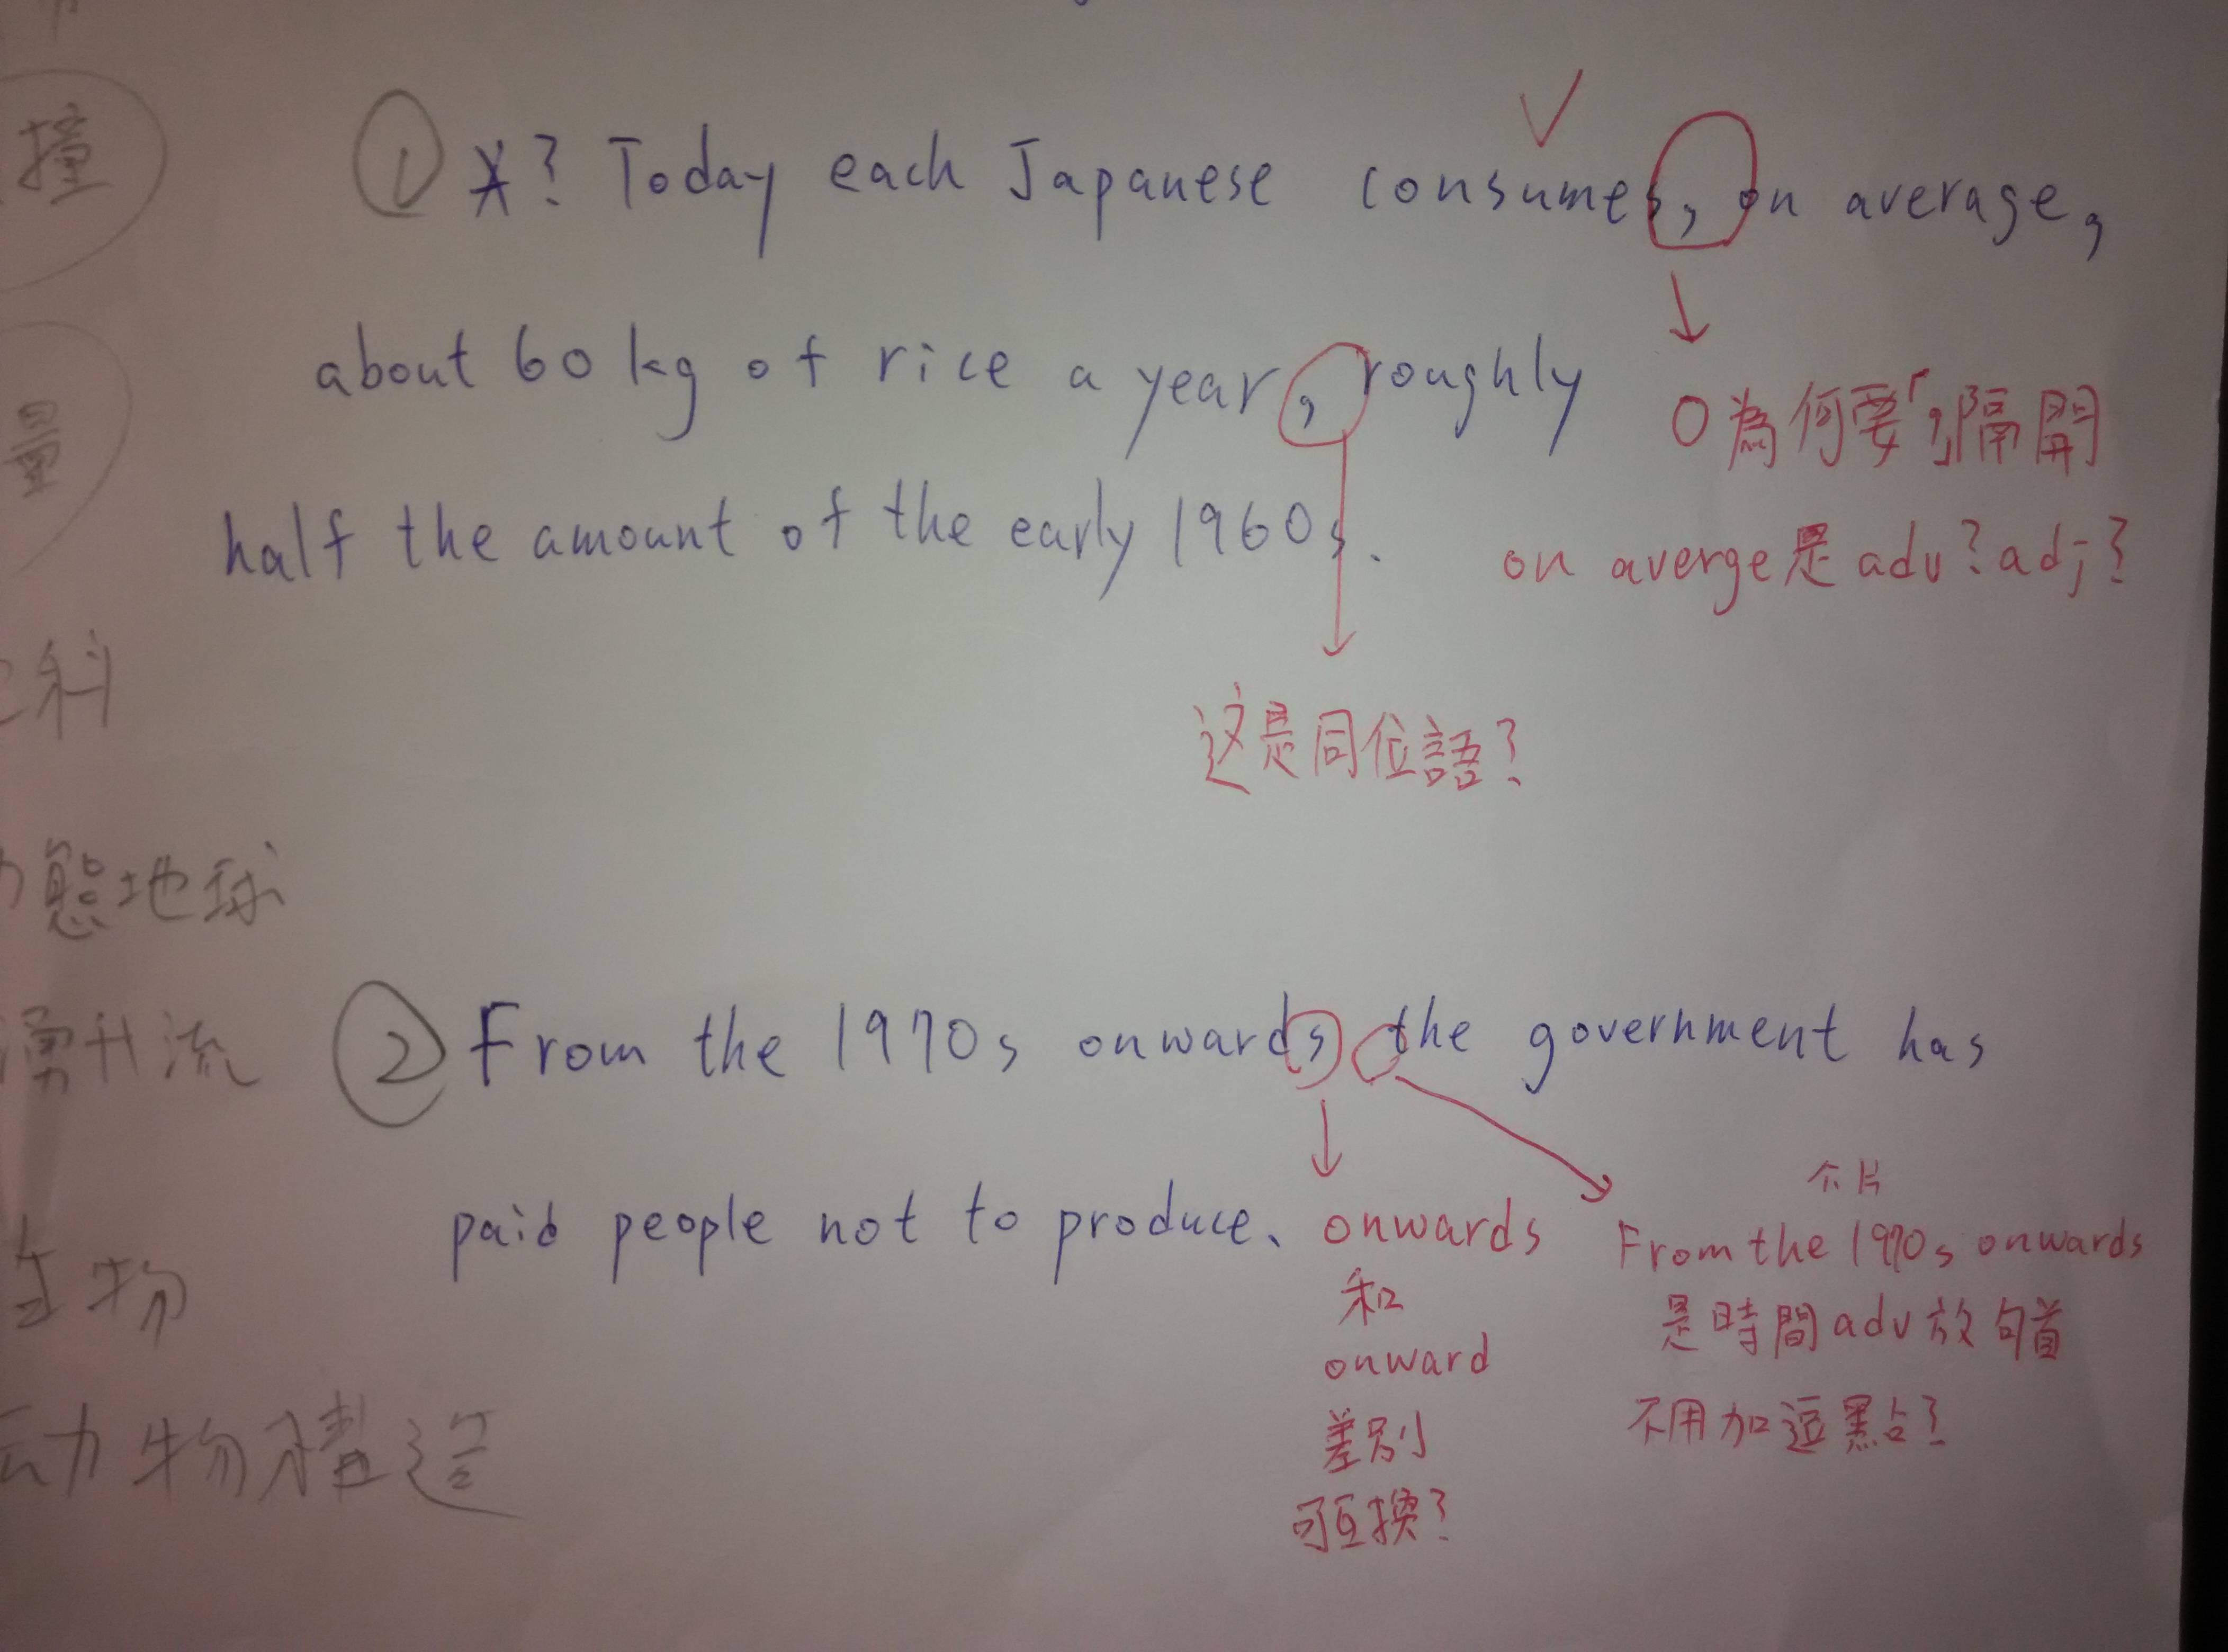 ① ✗? Today each Japanese consumes, on average,
about 60 kg of rice a year, roughly
half the amount of the early 1960s.
為何要「,」隔開
on averge是adv?adj?
这是同位語?
② From the 1970s onwards the government has
paid people not to produce.
onwards
和
onward
差別
可互換?
From the 1970s onwards
是時間adv放句首
不用加逗點?
撞
量
科
態地球
湧升流
生物
动物構造